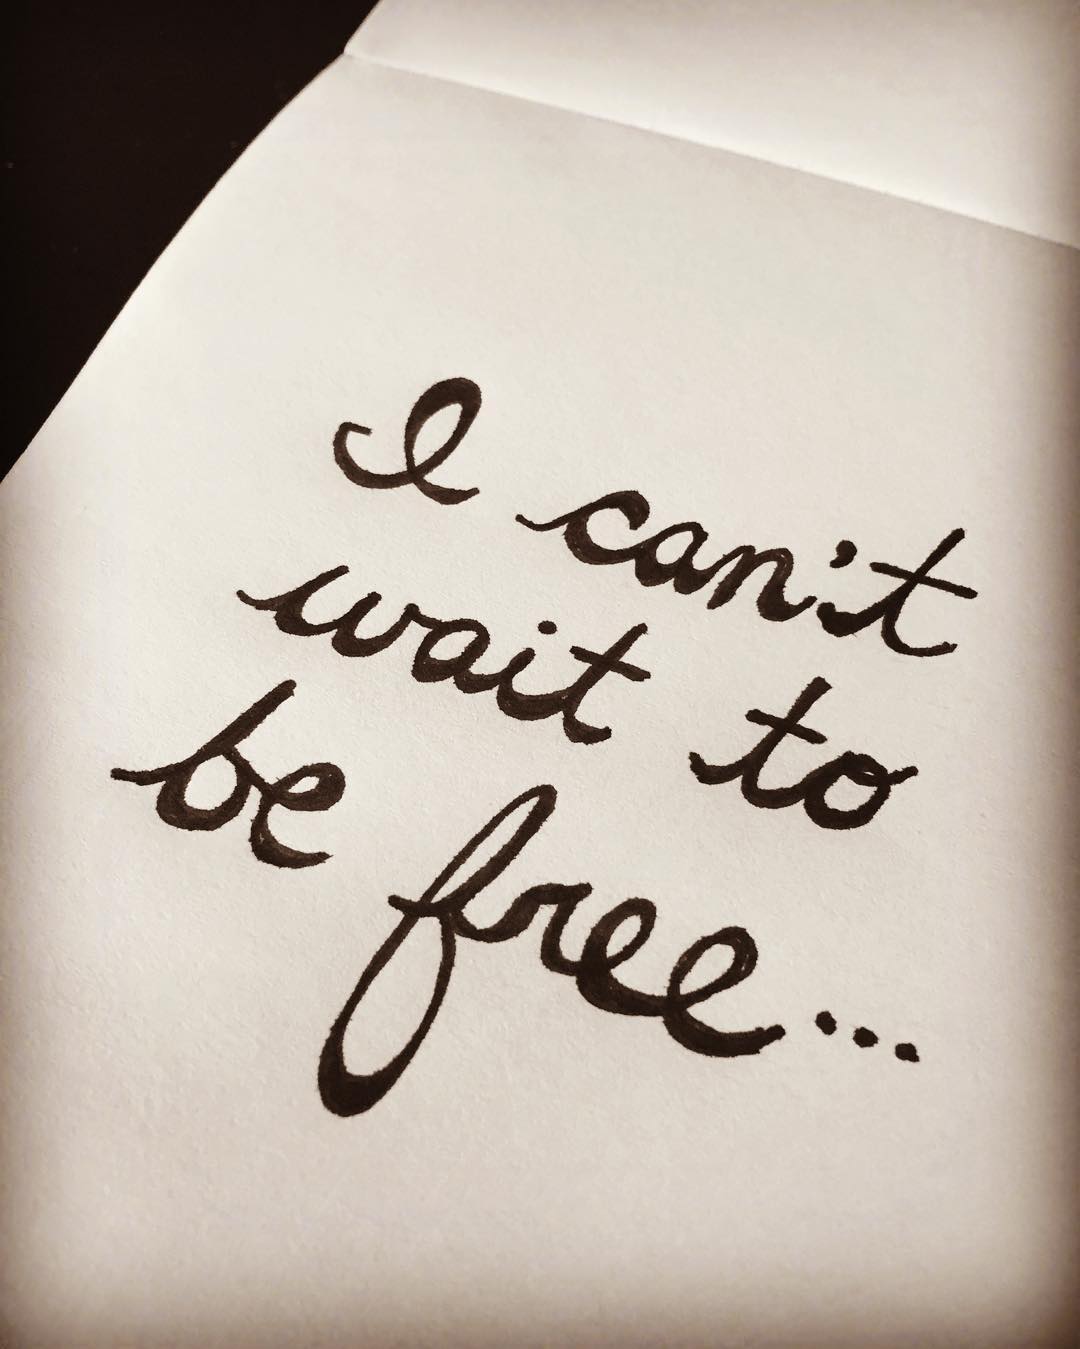 I can't
wait to
be free...